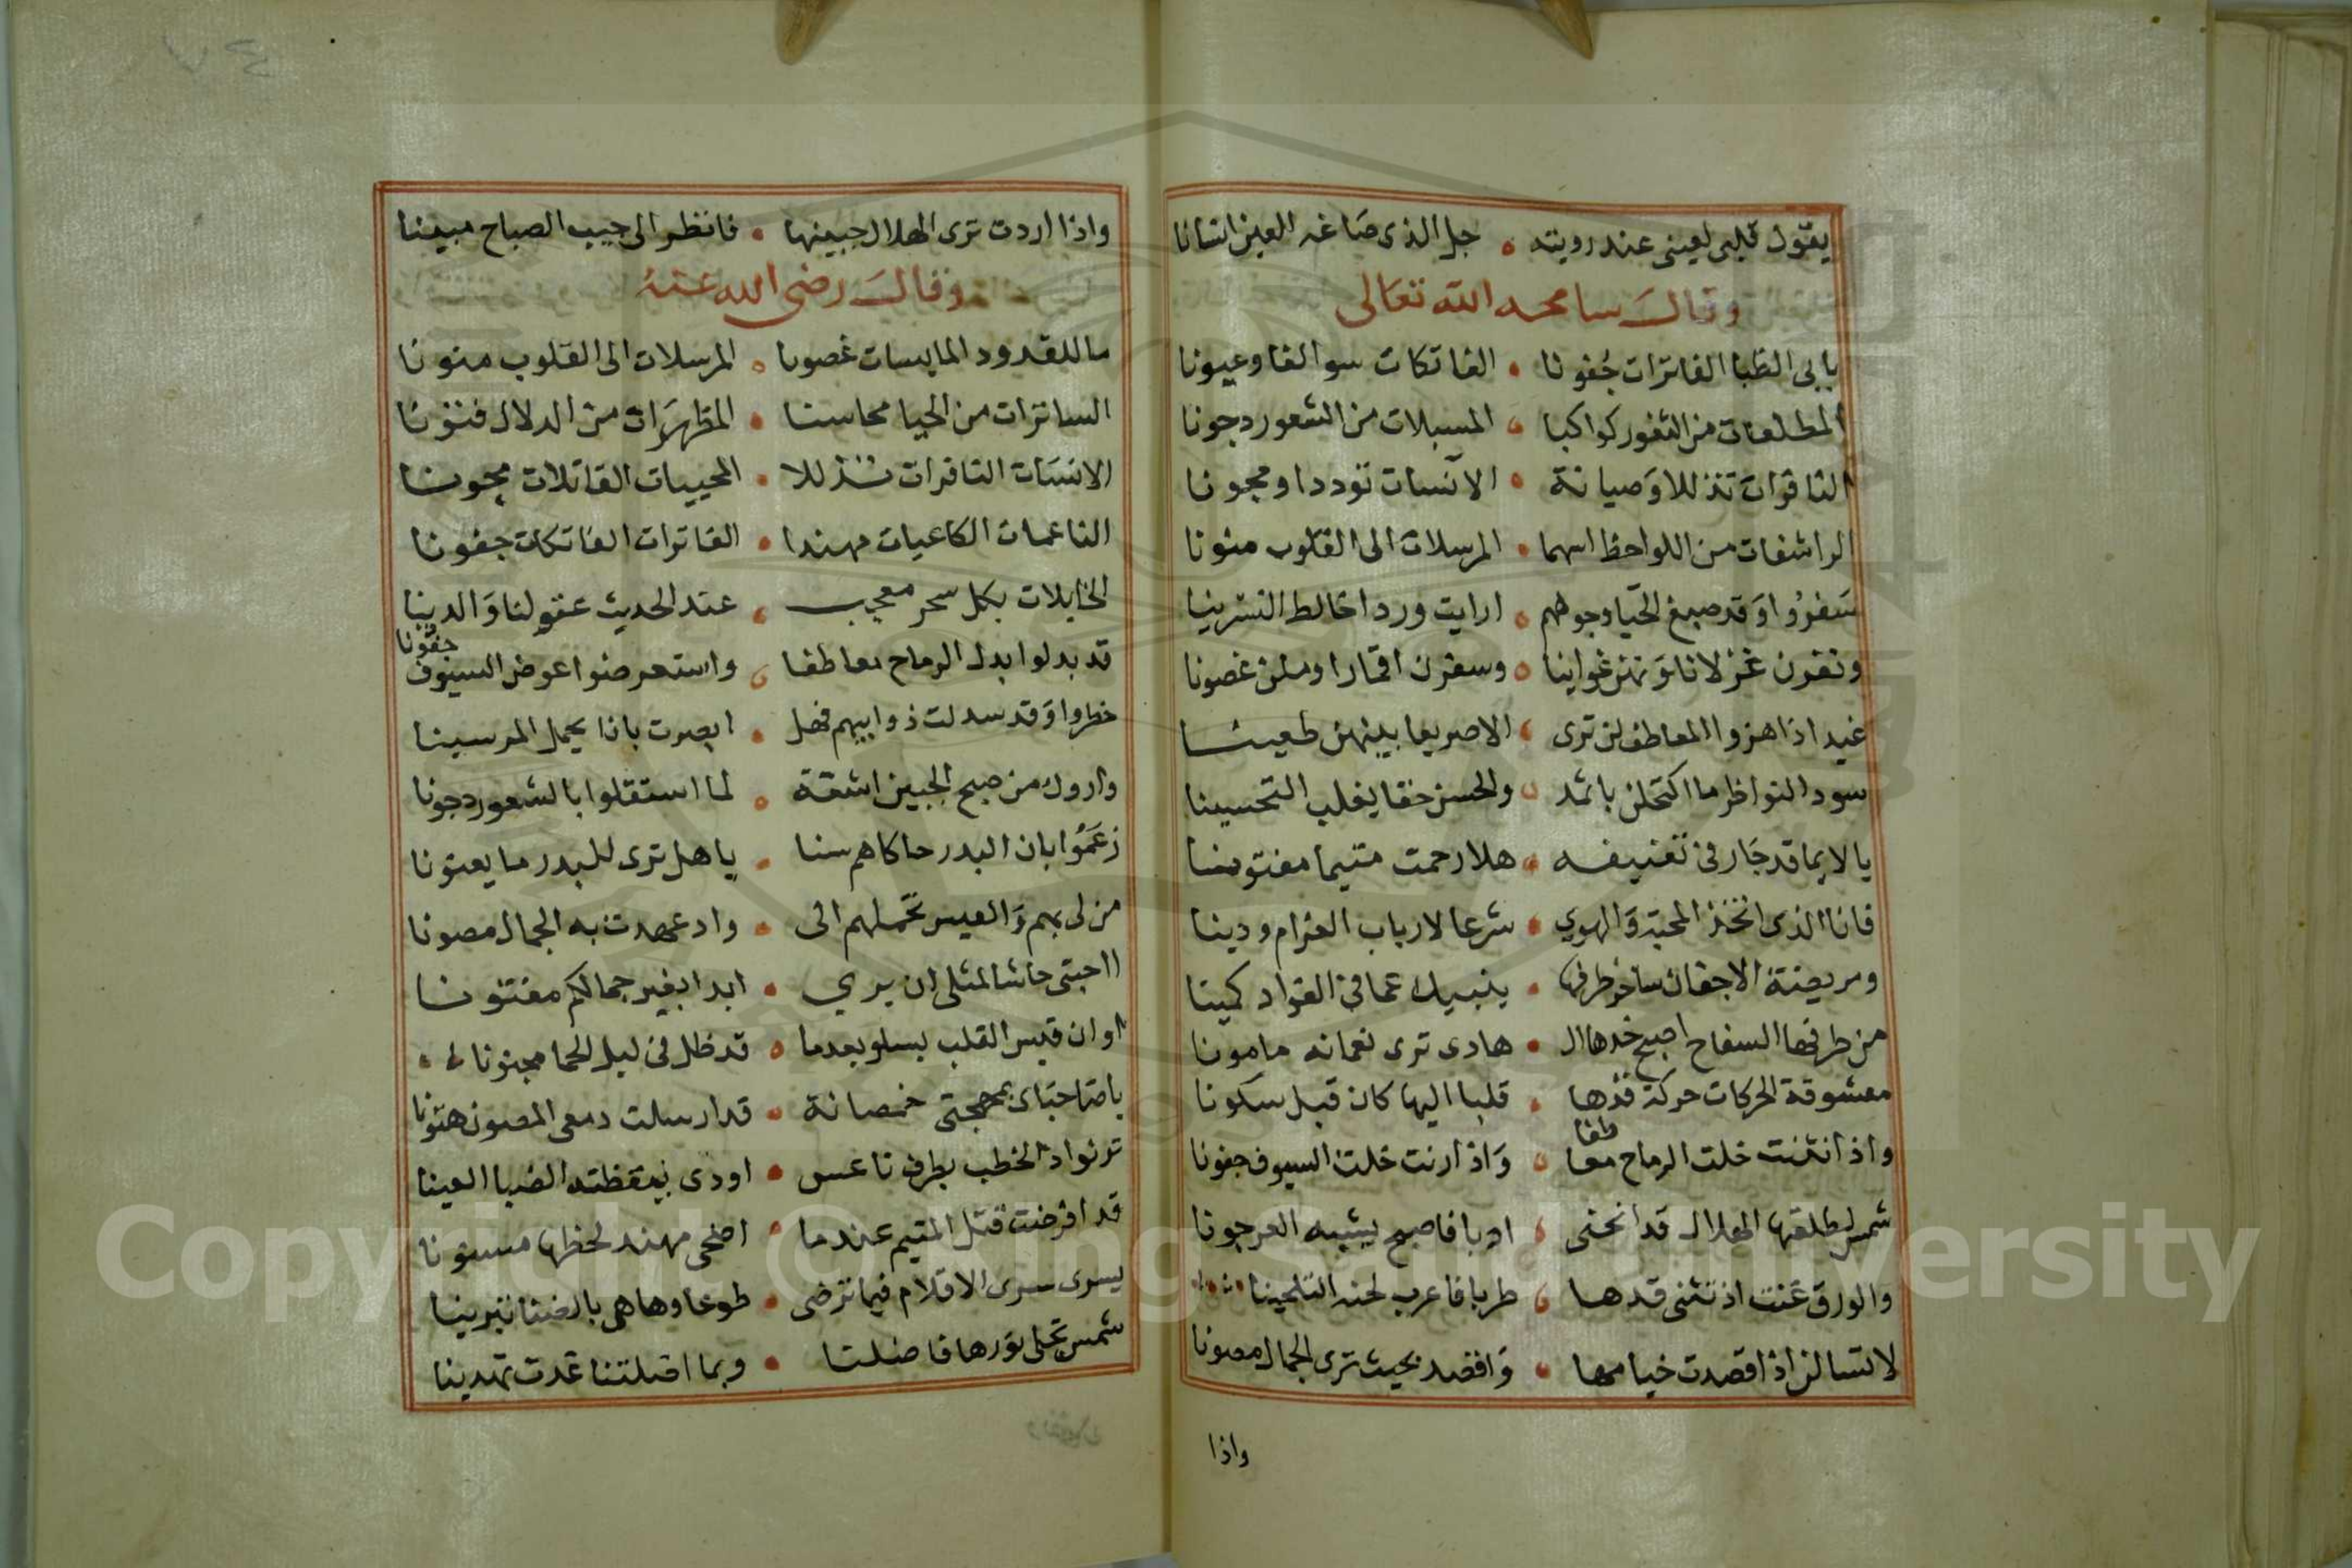 يقول قلبي لعيني عند رويته • جل الذى صاغه العين انسانا
وقال سامحه الله تعالى
بابى الظبا الفاترات جفونا • الفاتكات سوالفا وعيونا
المطلعات من الثغور كواكبا • المسبلات من الشعور دجونا
النافرات تذللا وصيانة • الآنسات توددا ومجونا
الراشفات من اللواحظ اسهما • المرسلات الى القلوب منونا
سفروا وقد صبغ الحيا وجوههم • ارايت وردا خالط النسرينا
ونفرن غزلانا وتهن غوانيا • وسفرن اقمارا ومسن غصونا
غيد اذا هزوا المعاطف لن ترى • الا صريعا بينهن طعينا
سود النواظر ما اكتحلن باثمد • والحسن حقا يغلب التحسينا
يا لايما قد جار فى تعنيفه • هلا رحمت متيما مفتونا
فانا الذى اتخذ المحبة والهوي • شرعا لارباب الغرام ودينا
ومريضة الاجفان ساخر طرفها • ينبيك عما فى الفواد كمينا
من طرفها السفاح اصبح خدها ال • هادى ترى نعمانه مامونا
معشوقة الحركات حركة قدها • قلبا اليها كان قبل سكونا
واذا انثنت خلت الرماح معاطفا • واذا رنت خلت السيوف جفونا
شمس لطلعتها الهلال قد انحنى • ادبا فاصبح يشبه العرجونا
والورق غنت اذ تثنى قدها • طربا فاعرب لحنه التلحينا
لا تسالن اذا قصدت خيامها • واقصد بحيث ترى الجمال مصونا
واذا
واذا اردت ترى الهلال جبينها • فانظر الى جيب الصباح مبينا
وقال رضى الله عنه
ما للقدود المايسات غصونا • المرسلات الى القلوب منونا
الساترات من الحيا محاسنا • المظهرات من الدلال فنونا
الانسات النافرات تذللا • المحييات القاتلات مجونا
الناعمات الكاعبات مهندا • الفاترات الفاتكات جفونا
الخايلات بكل سحر معجب • عند الحديث عقولنا والدينا
قد بدلوا بدل الرماح معاطفا • واستعرضوا عوض السيوف جفونا
خطروا وقد سدلت ذوايبهم فهل • ابصرت بانا يحمل المرسينا
واروك من صبح الجبين اشقة • لما استقلوا بالشعور دجونا
زعموا بان البدر حاكاهم سنا • ياهل ترى للبدر ما يعنونا
من لى بهم والعيس تحملهم الى • واد عهدت به الجمال مصونا
ااحبتى حاشا لمثلى ان يري • ابدا بغير جمالكم مفتونا
او ان قيس القلب يسلو بعدما • قد ظل فى ليل الحما مجنونا
ياصاحباى بمهجتى خمصانة • قد ارسلت دمعى المصون هتونا
ترنوا دالخطب بطرف ناعس • اودى بيقظته الضبا العينا
قد افرضت قتل المتيم عندما • اضحى مهند لحظها مسنونا
يسرى سرى الاقلام فيما ترضى • طوعا وها هى بالضنا تبرينا
شمس تجلى نورها فاضلنا • وبما اضلتنا غدت تهدينا